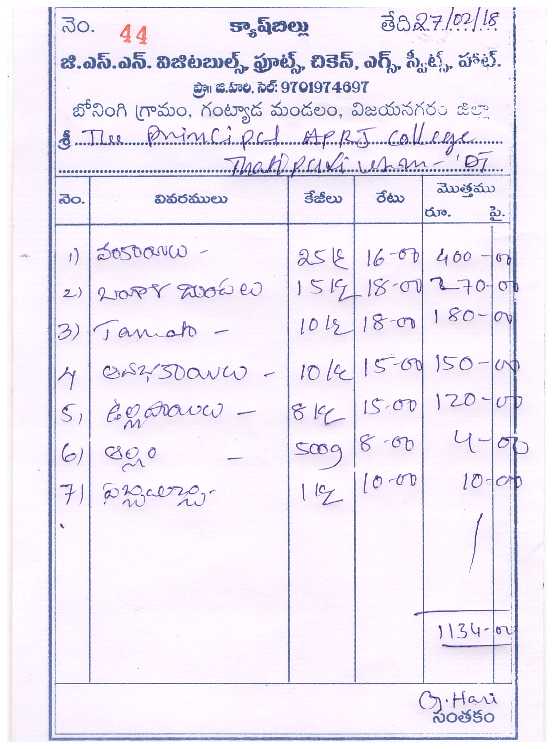 నెం. 44 క్యాష్‌బిల్లు తేది 27/02/18
జి.ఎస్.ఎన్. విజిటబుల్స్, ఫ్రూట్స్, చికెన్, ఎగ్స్, స్వీట్స్, హాట్.
ప్రొ॥ జి.హరి, సెల్: 9701974697
బోనంగి గ్రామం, గంట్యాడ మండలం, విజయనగరం జిల్లా
శ్రీ The Principal APRJ College
నెం. వివరములు కేజీలు రేటు మొత్తము
రూ. పై.
1) వంకాయలు - 25 k 16-00 400-00
2) బంగాళ దుంపలు 15 k 18-00 270-00
3) Tamato - 10 k 18-00 180-00
4 ఆనభకాయలు - 10 k 15-00 150-00
5) ఉల్లిపాయలు - 8 k 15-00 120-00
6) అల్లం - 500g 8-00 4-00
7) 1 k 10-00 10-00
1134-00
G. Hari
సంతకం